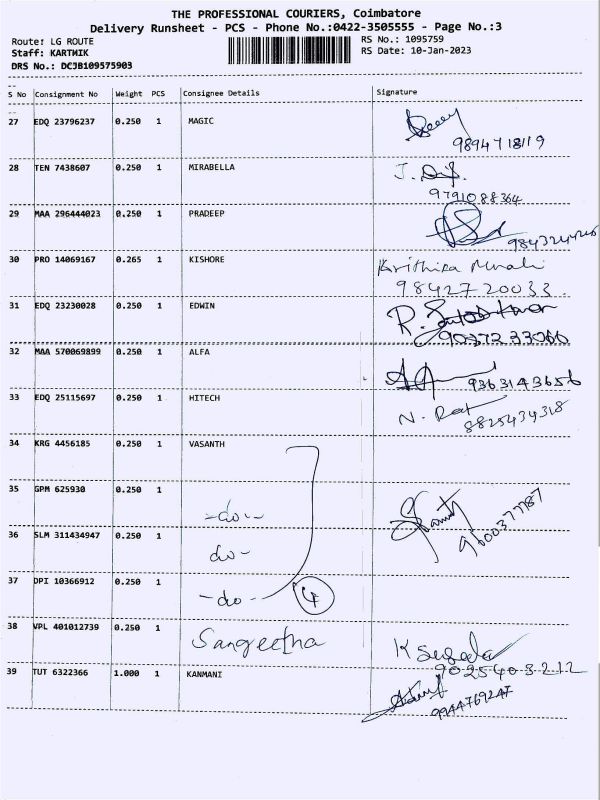 THE PROFESSIONAL COURIERS, Coimbatore
Delivery Runsheet - PCS - Phone No.:0422-3505555 - Page No.:3
Route: LG ROUTE RS No.: 1095759
Staff: KARTHIK RS Date: 10-Jan-2023
DRS No.: DCJB109575903
S No Consignment No Weight PCS Consignee Details Signature
27 EDQ 23796237 0.250 1 MAGIC
9894718119
28 TEN 7438607 0.250 1 MIRABELLA J.
9791088364
29 MAA 296444023 0.250 1 PRADEEP
30 PRO 14069167 0.265 1 KISHORE Krithika Murali
98427 20033
31 EDQ 23230028 0.250 1 EDWIN R.
90372 33066
32 MAA 570069899 0.250 1 ALFA
9363143656
33 EDQ 25115697 0.250 1 HITECH N.
8825434318
34 KRG 4456185 0.250 1 VASANTH
35 GPM 625930 0.250 1
-do-
9600377787
36 SLM 311434947 0.250 1
do-
37 DPI 10366912 0.250 1
-do- 4
38 VPL 401012739 0.250 1 Sangeetha K
9025403212
39 TUT 6322366 1.000 1 KANMANI
9944769247